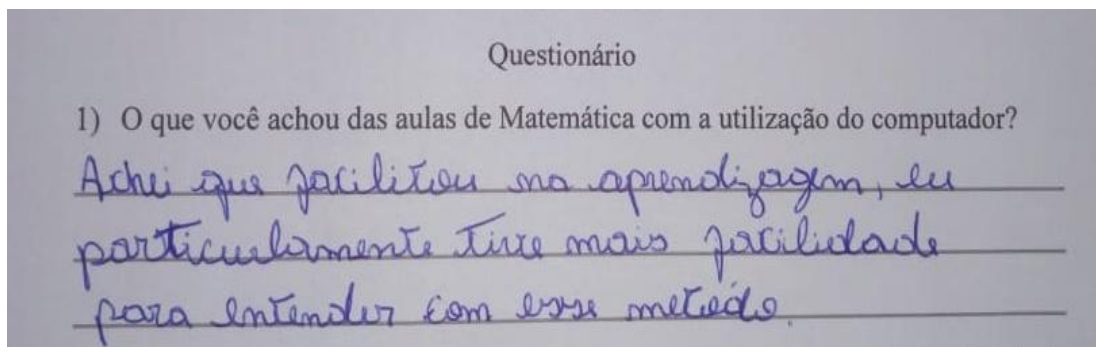 Questionário
1) O que você achou das aulas de Matemática com a utilização do computador?
Achei que facilitou na aprendizagem, eu
particularmente tive mais facilidade
para entender com esse metodo.